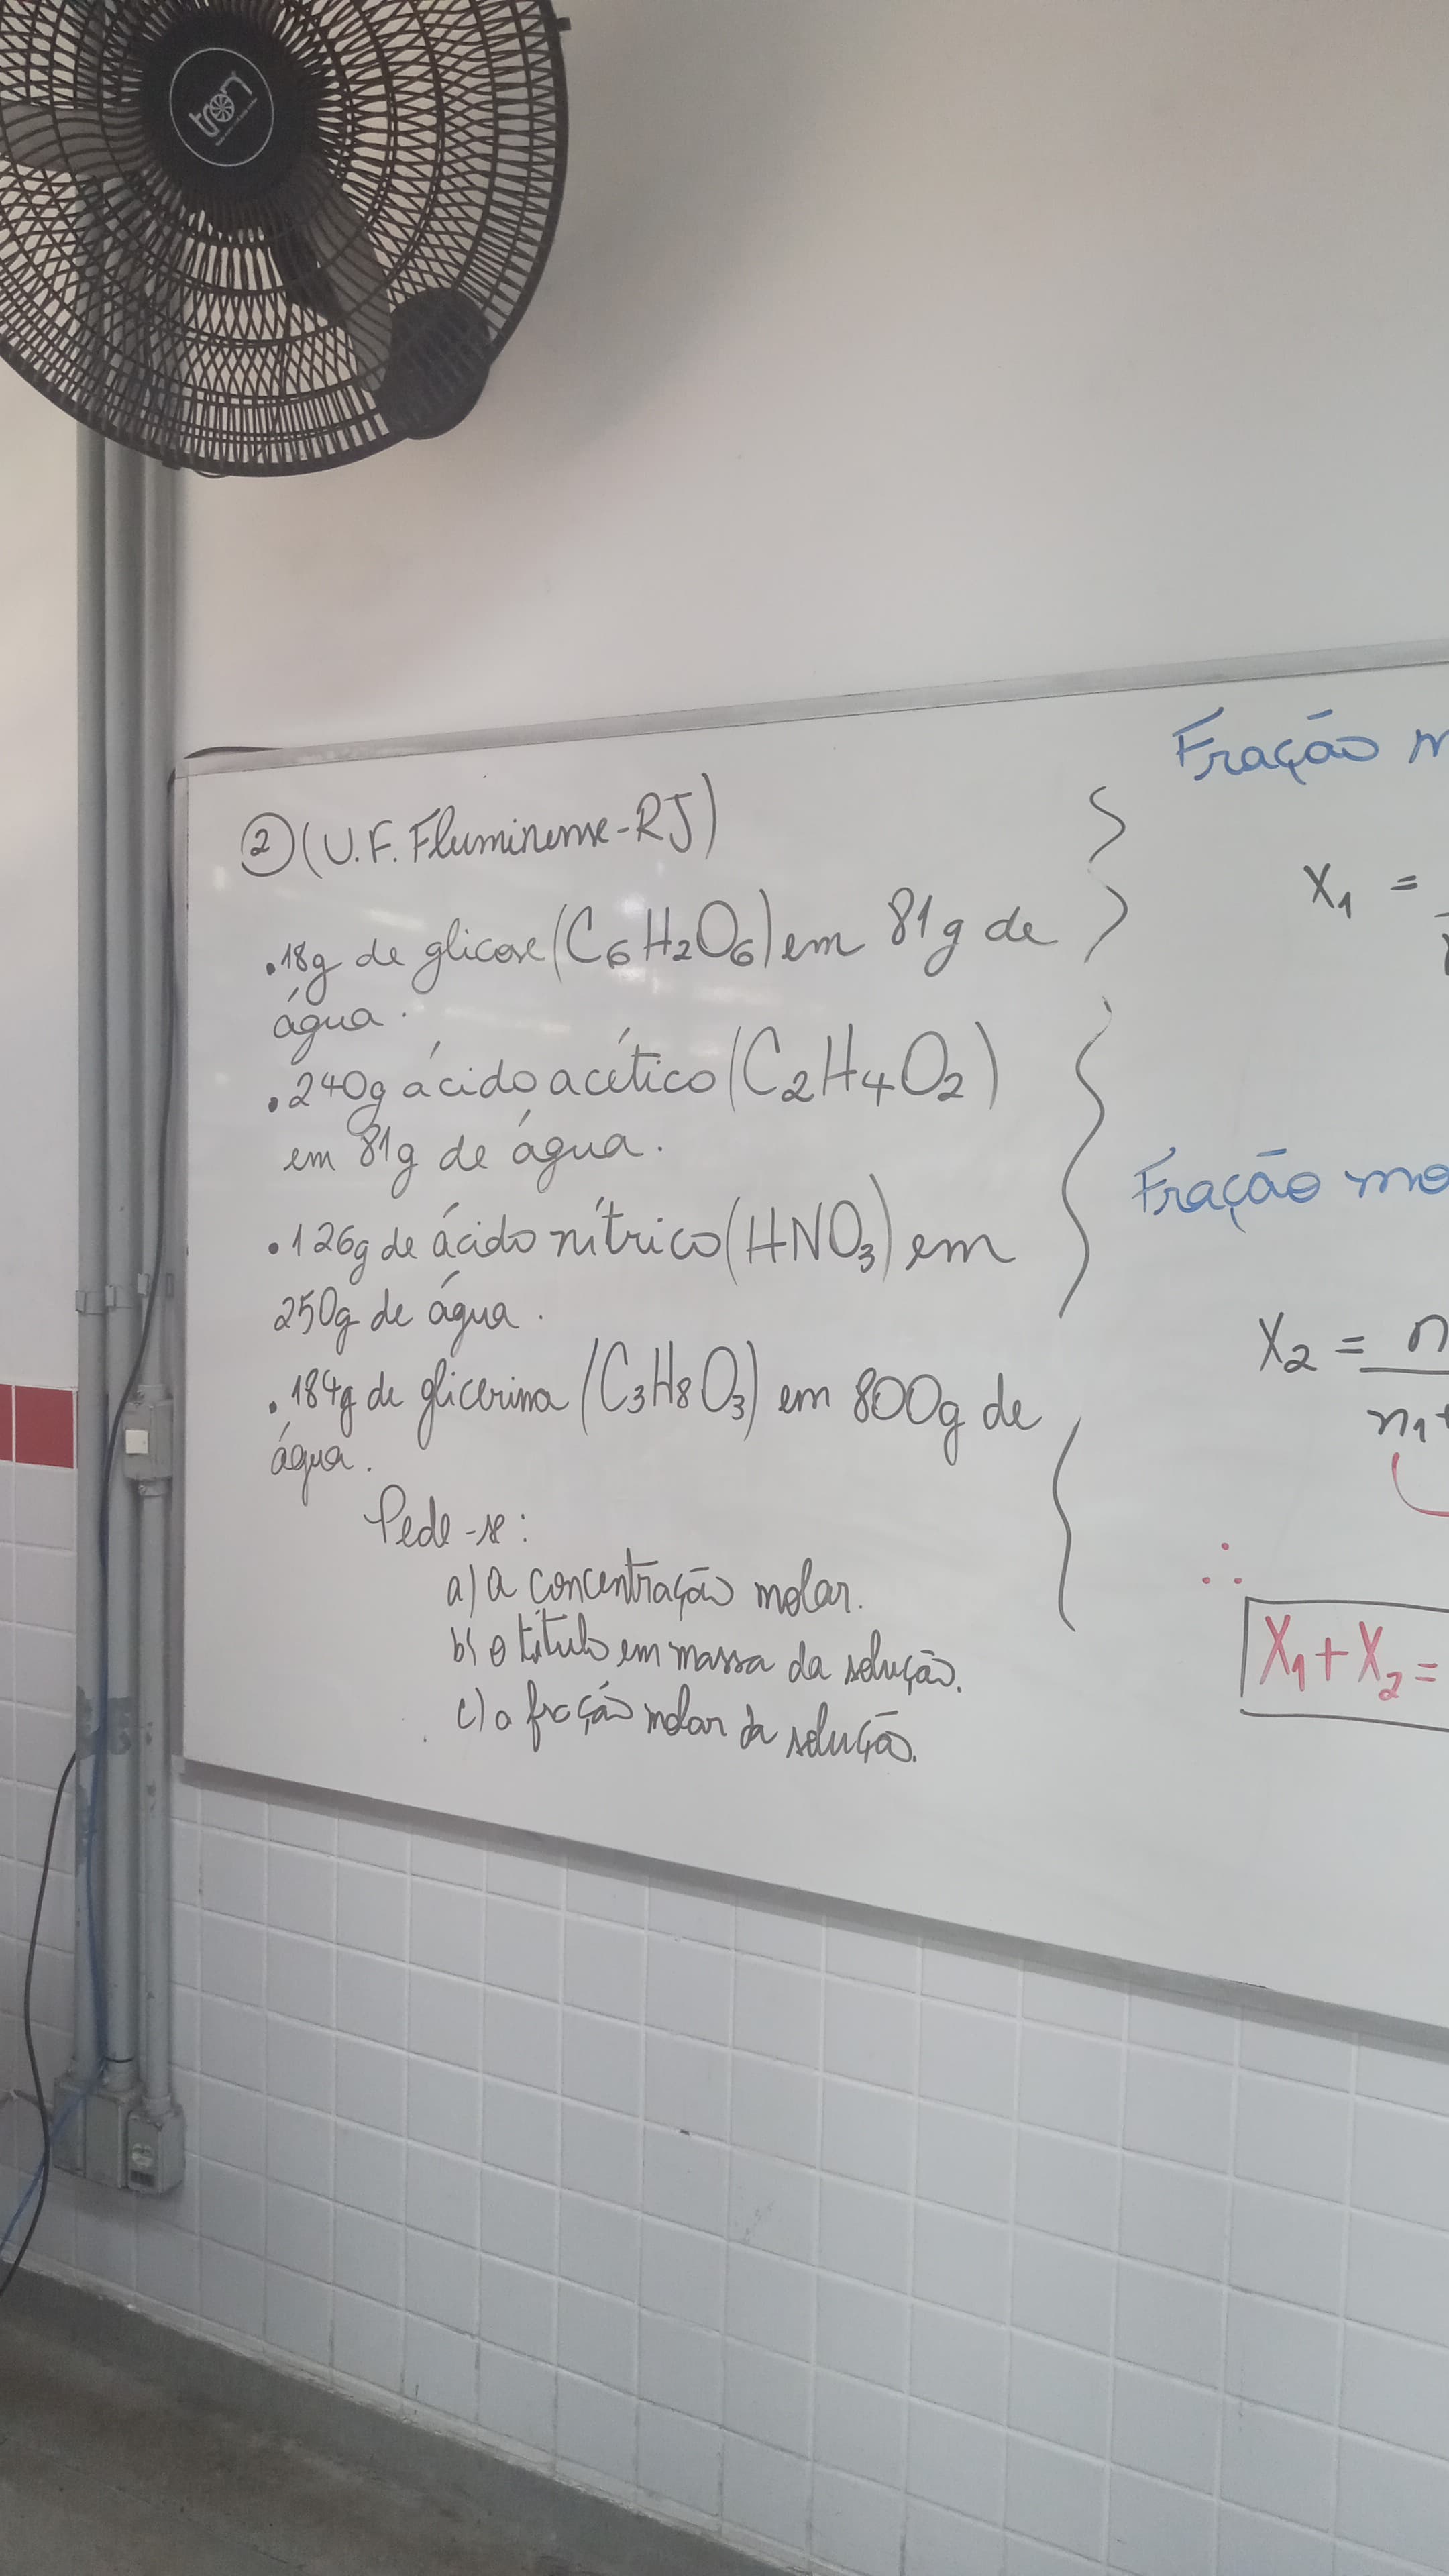 tron
② (U.F. Fluminense-RJ)
.18g de glicose (C₆H₂O₆) em 81g de
água.
.240g ácido acético (C₂H₄O₂)
em 81g de água.
.126g de ácido nítrico (HNO₃) em
250g de água.
.184g de glicerina (C₃H₈O₃) em 800g de
água.
Pede-se:
a) a concentração molar.
b) o título em massa da solução.
c) a fração molar da solução.
Fração m
X₁ =
Fração mo
X₂ = n
n₁+
∴
X₁+X₂=